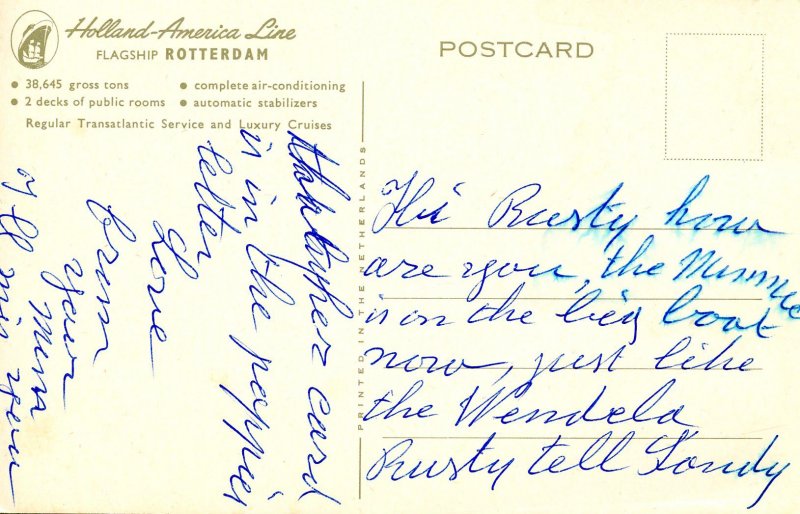 Holland-America Line
FLAGSHIP ROTTERDAM
• 38,645 gross tons
• complete air-conditioning
• 2 decks of public rooms
• automatic stabilizers
Regular Transatlantic Service and Luxury Cruises
POSTCARD
PRINTED IN THE NETHERLANDS
Hi Rusty how
are you, the Mummie
is on the big boat
now, just like
the Wendela
Rusty tell
card
is in the pappies
letter
Love
from
your
Mum
miss you